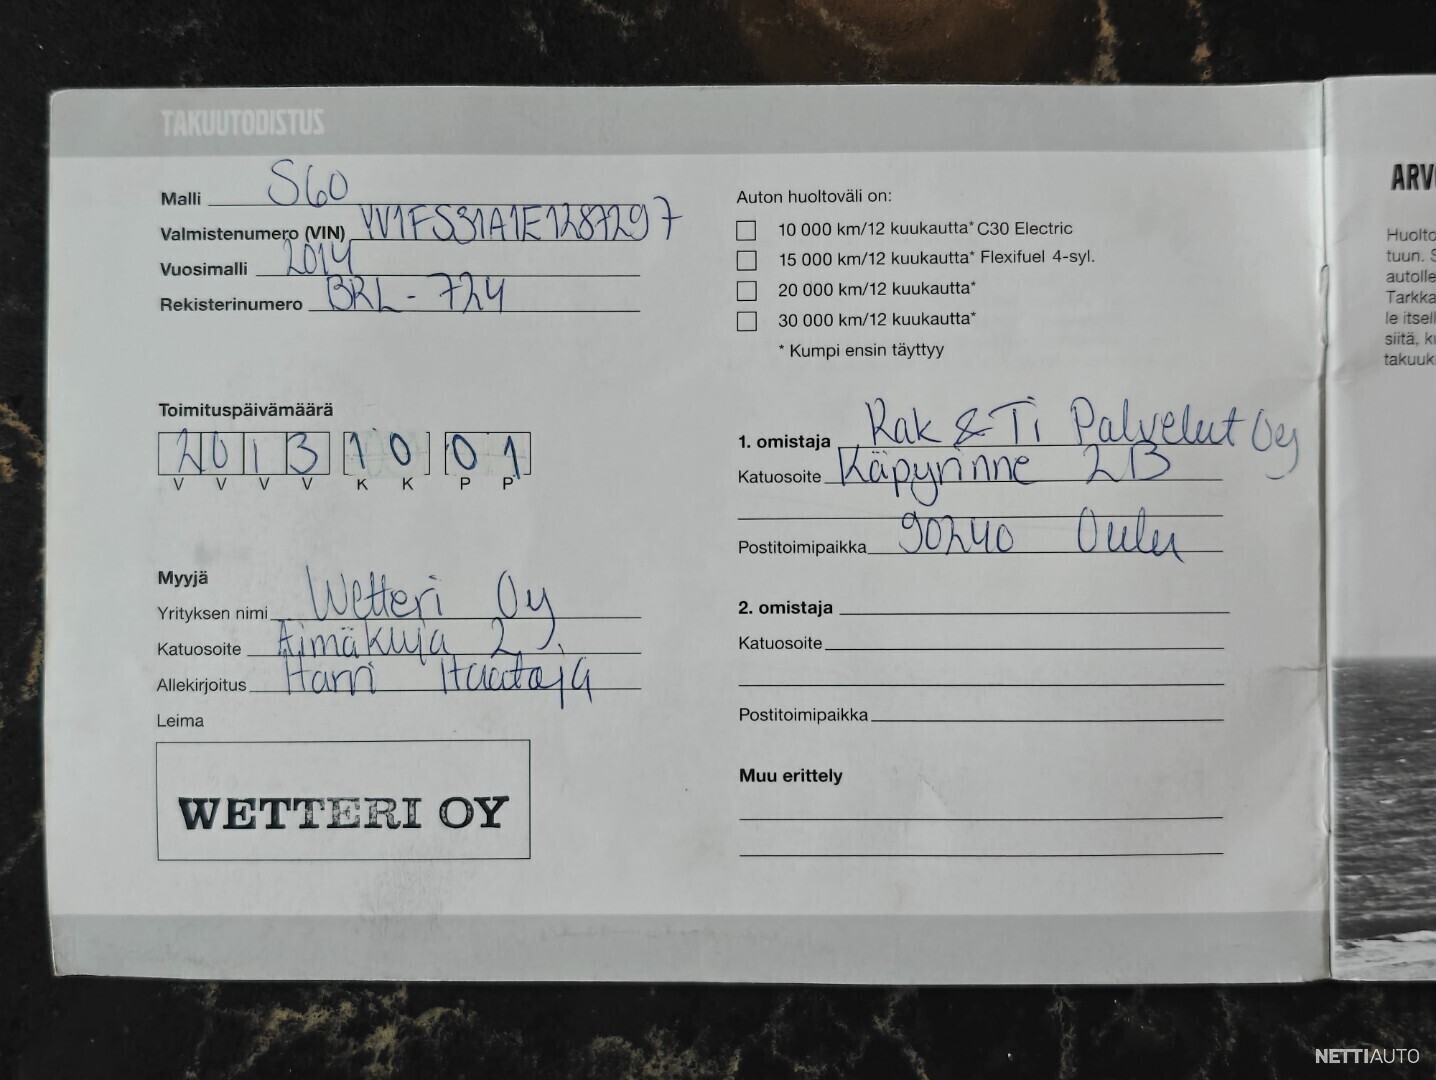 TAKUUTODISTUS
Malli S60
Valmistenumero (VIN) YV1FS31A1E1287297
Vuosimalli 2014
Rekisterinumero BRL-724
Toimituspäivämäärä
2013 10 01
V V V V K K P P
Myyjä
Yrityksen nimi Wetteri Oy
Katuosoite Äimäkuja 2
Allekirjoitus Harri Haataja
Leima
WETTERI OY
Auton huoltoväli on:
10 000 km/12 kuukautta* C30 Electric
15 000 km/12 kuukautta* Flexifuel 4-syl.
20 000 km/12 kuukautta*
30 000 km/12 kuukautta*
* Kumpi ensin täyttyy
1. omistaja Rak & Ti Palvelut Oy
Katuosoite Käpyrinne 2B
Postitoimipaikka 90240 Oulu
2. omistaja
Katuosoite
Postitoimipaikka
Muu erittely
ARV
Huolto
tuun. S
autolle
Tarkka
le itsell
siitä, k
takuuk
NETTIAUTO